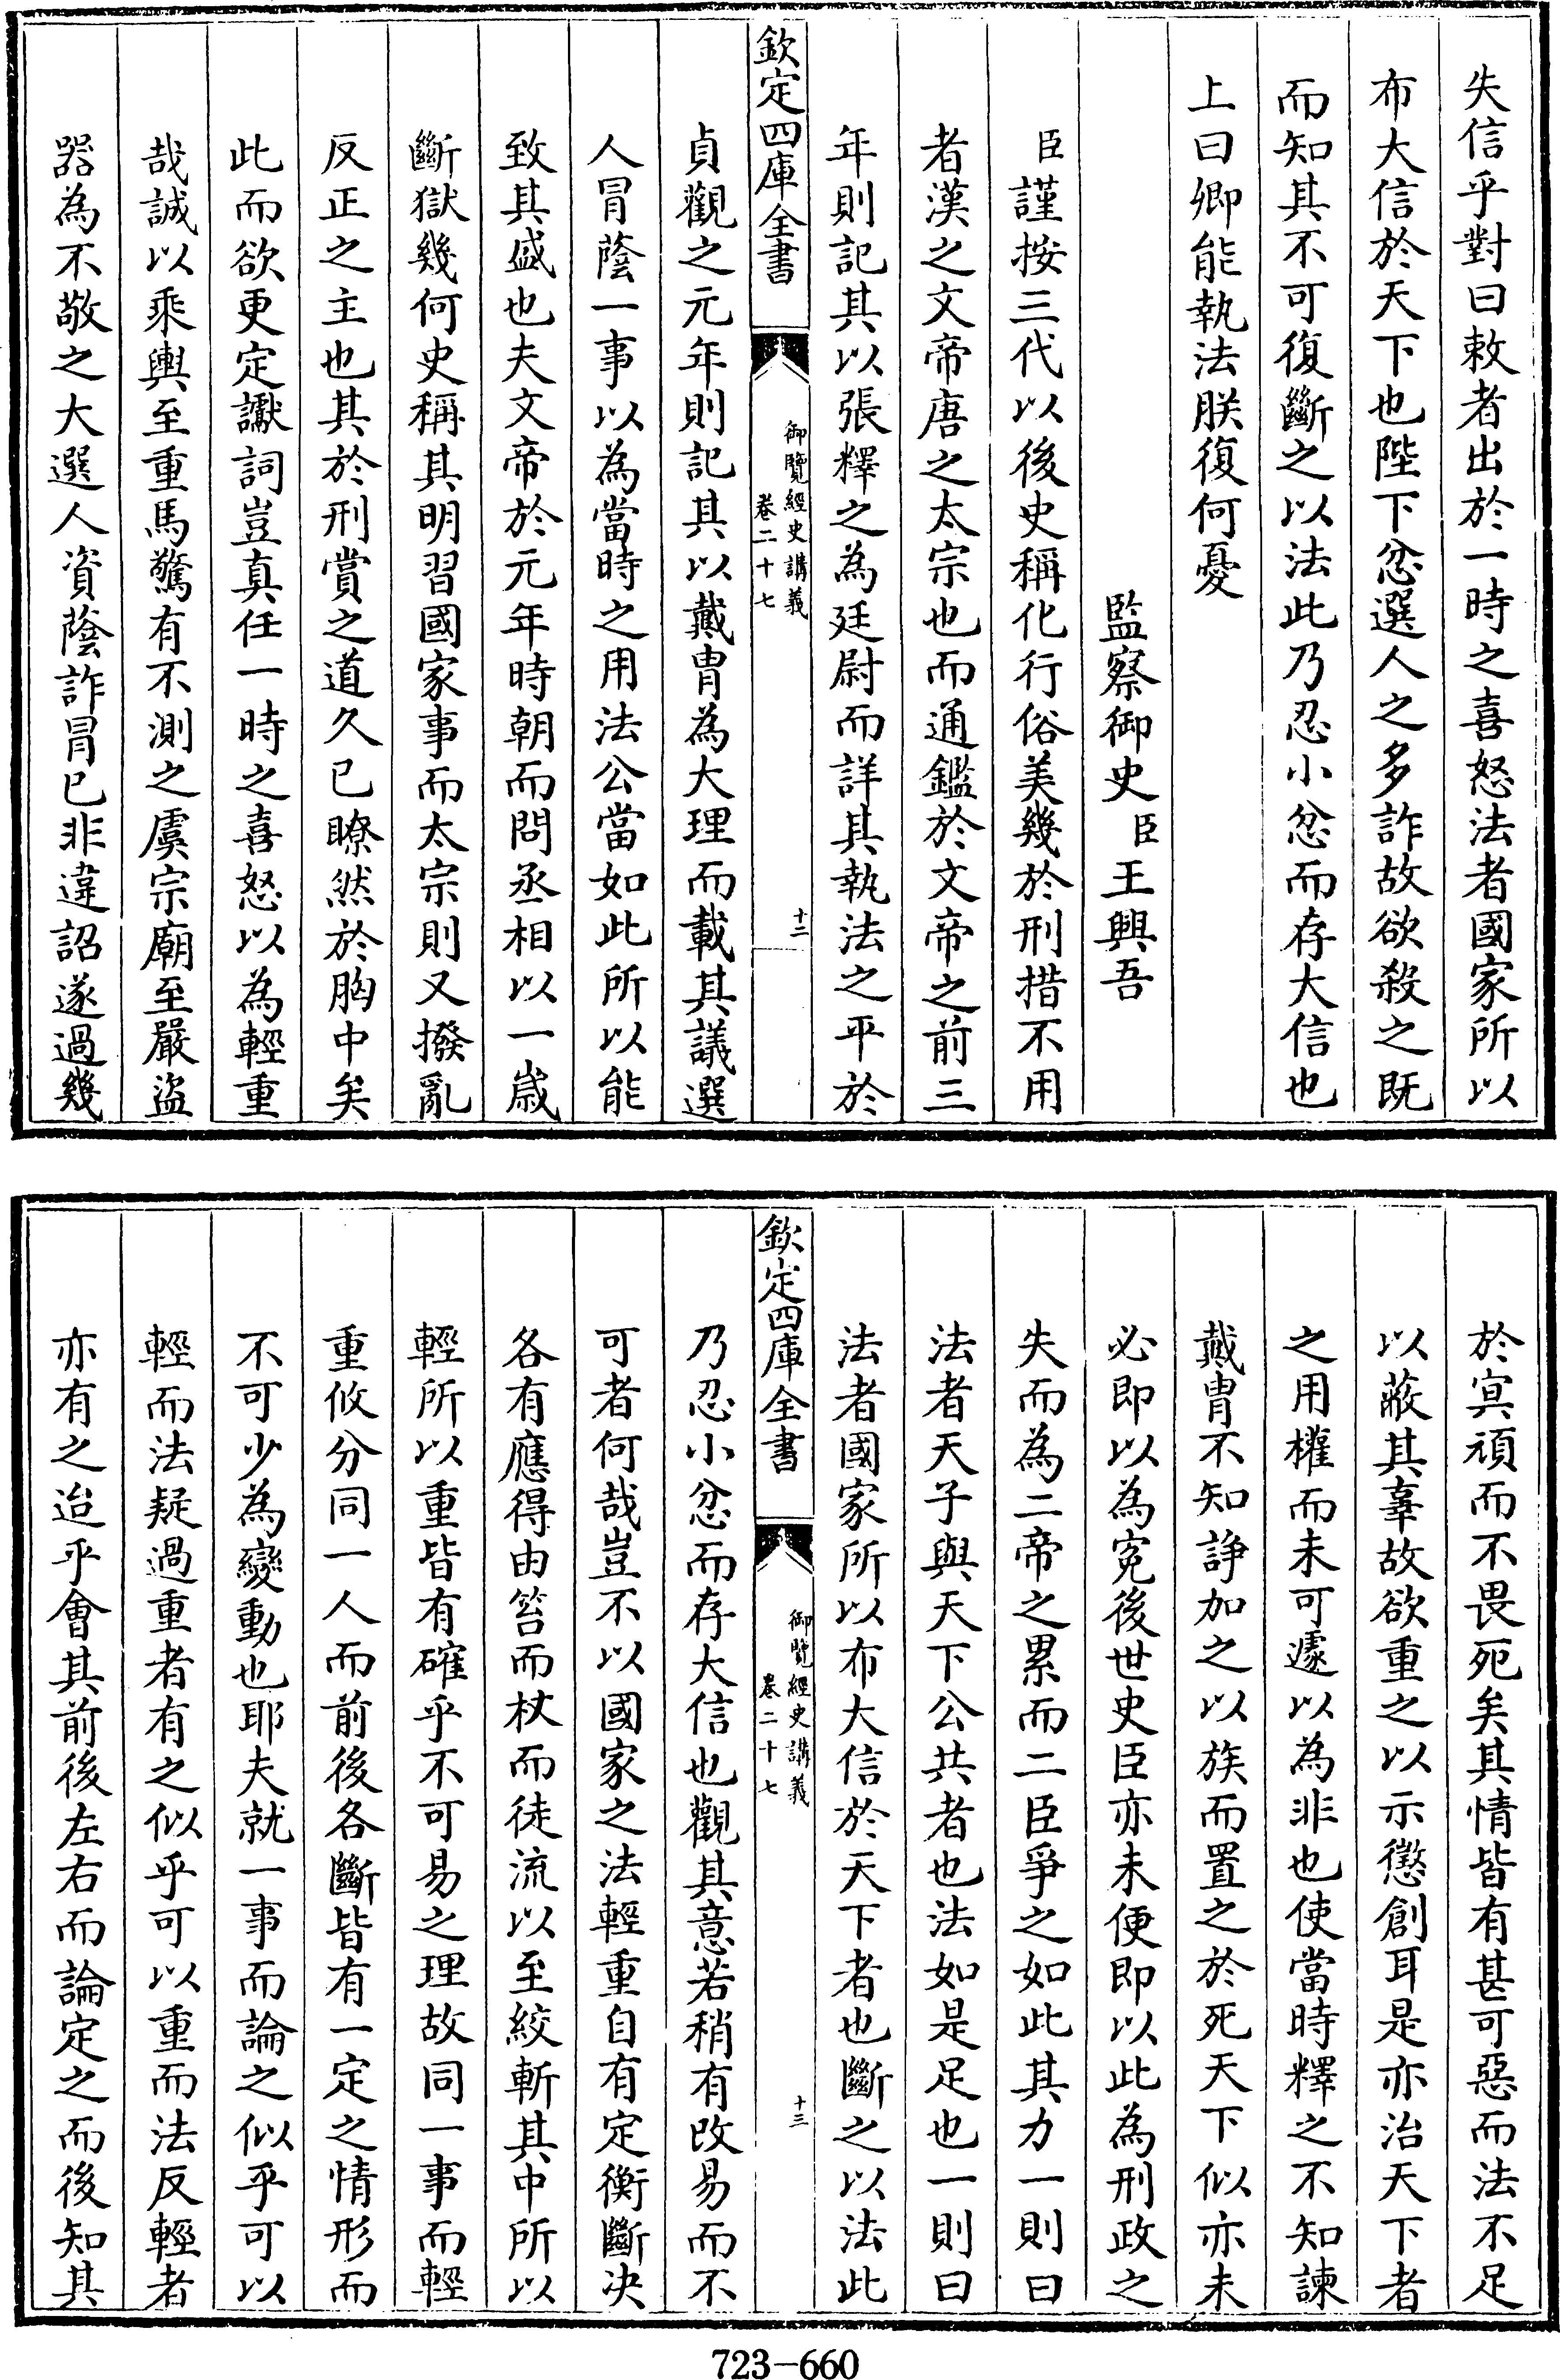 失信乎對曰敕者出於一時之喜怒法者國家所以
布大信於天下也陛下忿選人之多詐故欲殺之既
而知其不可復斷之以法此乃忍小忿而存大信也
上曰卿能執法朕復何憂
監察御史臣王興吾
臣謹按三代以後史稱化行俗美幾於刑措不用
者漢之文帝唐之太宗也而通鑑於文帝之前三
年則記其以張釋之為廷尉而詳其執法之平於
欽定四庫全書
御覽經史講義
卷二十七
十二
貞觀之元年則記其以戴胄為大理而載其議選
人冒蔭一事以為當時之用法公當如此所以能
致其盛也夫文帝於元年時朝而問丞相以一歲
斷獄幾何史稱其明習國家事而太宗則又撥亂
反正之主也其於刑賞之道久已瞭然於胸中矣
此而欲更定讞詞豈真任一時之喜怒以為輕重
哉誠以乘輿至重馬驚有不測之虞宗廟至嚴盜
器為不敬之大選人資蔭詐冒已非違詔遂過幾
於冥頑而不畏死矣其情皆有甚可惡而法不足
以蔽其辜故欲重之以示懲創耳是亦治天下者
之用權而未可遽以為非也使當時釋之不知諫
戴胄不知諍加之以族而置之於死天下似亦未
必即以為寃後世史臣亦未便即以此為刑政之
失而為二帝之累而二臣爭之如此其力一則曰
法者天子與天下公共者也法如是足也一則曰
法者國家所以布大信於天下者也斷之以法此
欽定四庫全書
御覽經史講義
卷二十七
十三
乃忍小忿而存大信也觀其意若稍有改易而不
可者何哉豈不以國家之法輕重自有定衡斷决
各有應得由笞而杖而徒流以至絞斬其中所以
輕所以重皆有確乎不可易之理故同一事而輕
重攸分同一人而前後各斷皆有一定之情形而
不可少為變動也耶夫就一事而論之似乎可以
輕而法疑過重者有之似乎可以重而法反輕者
亦有之迨乎會其前後左右而論定之而後知其
723-660